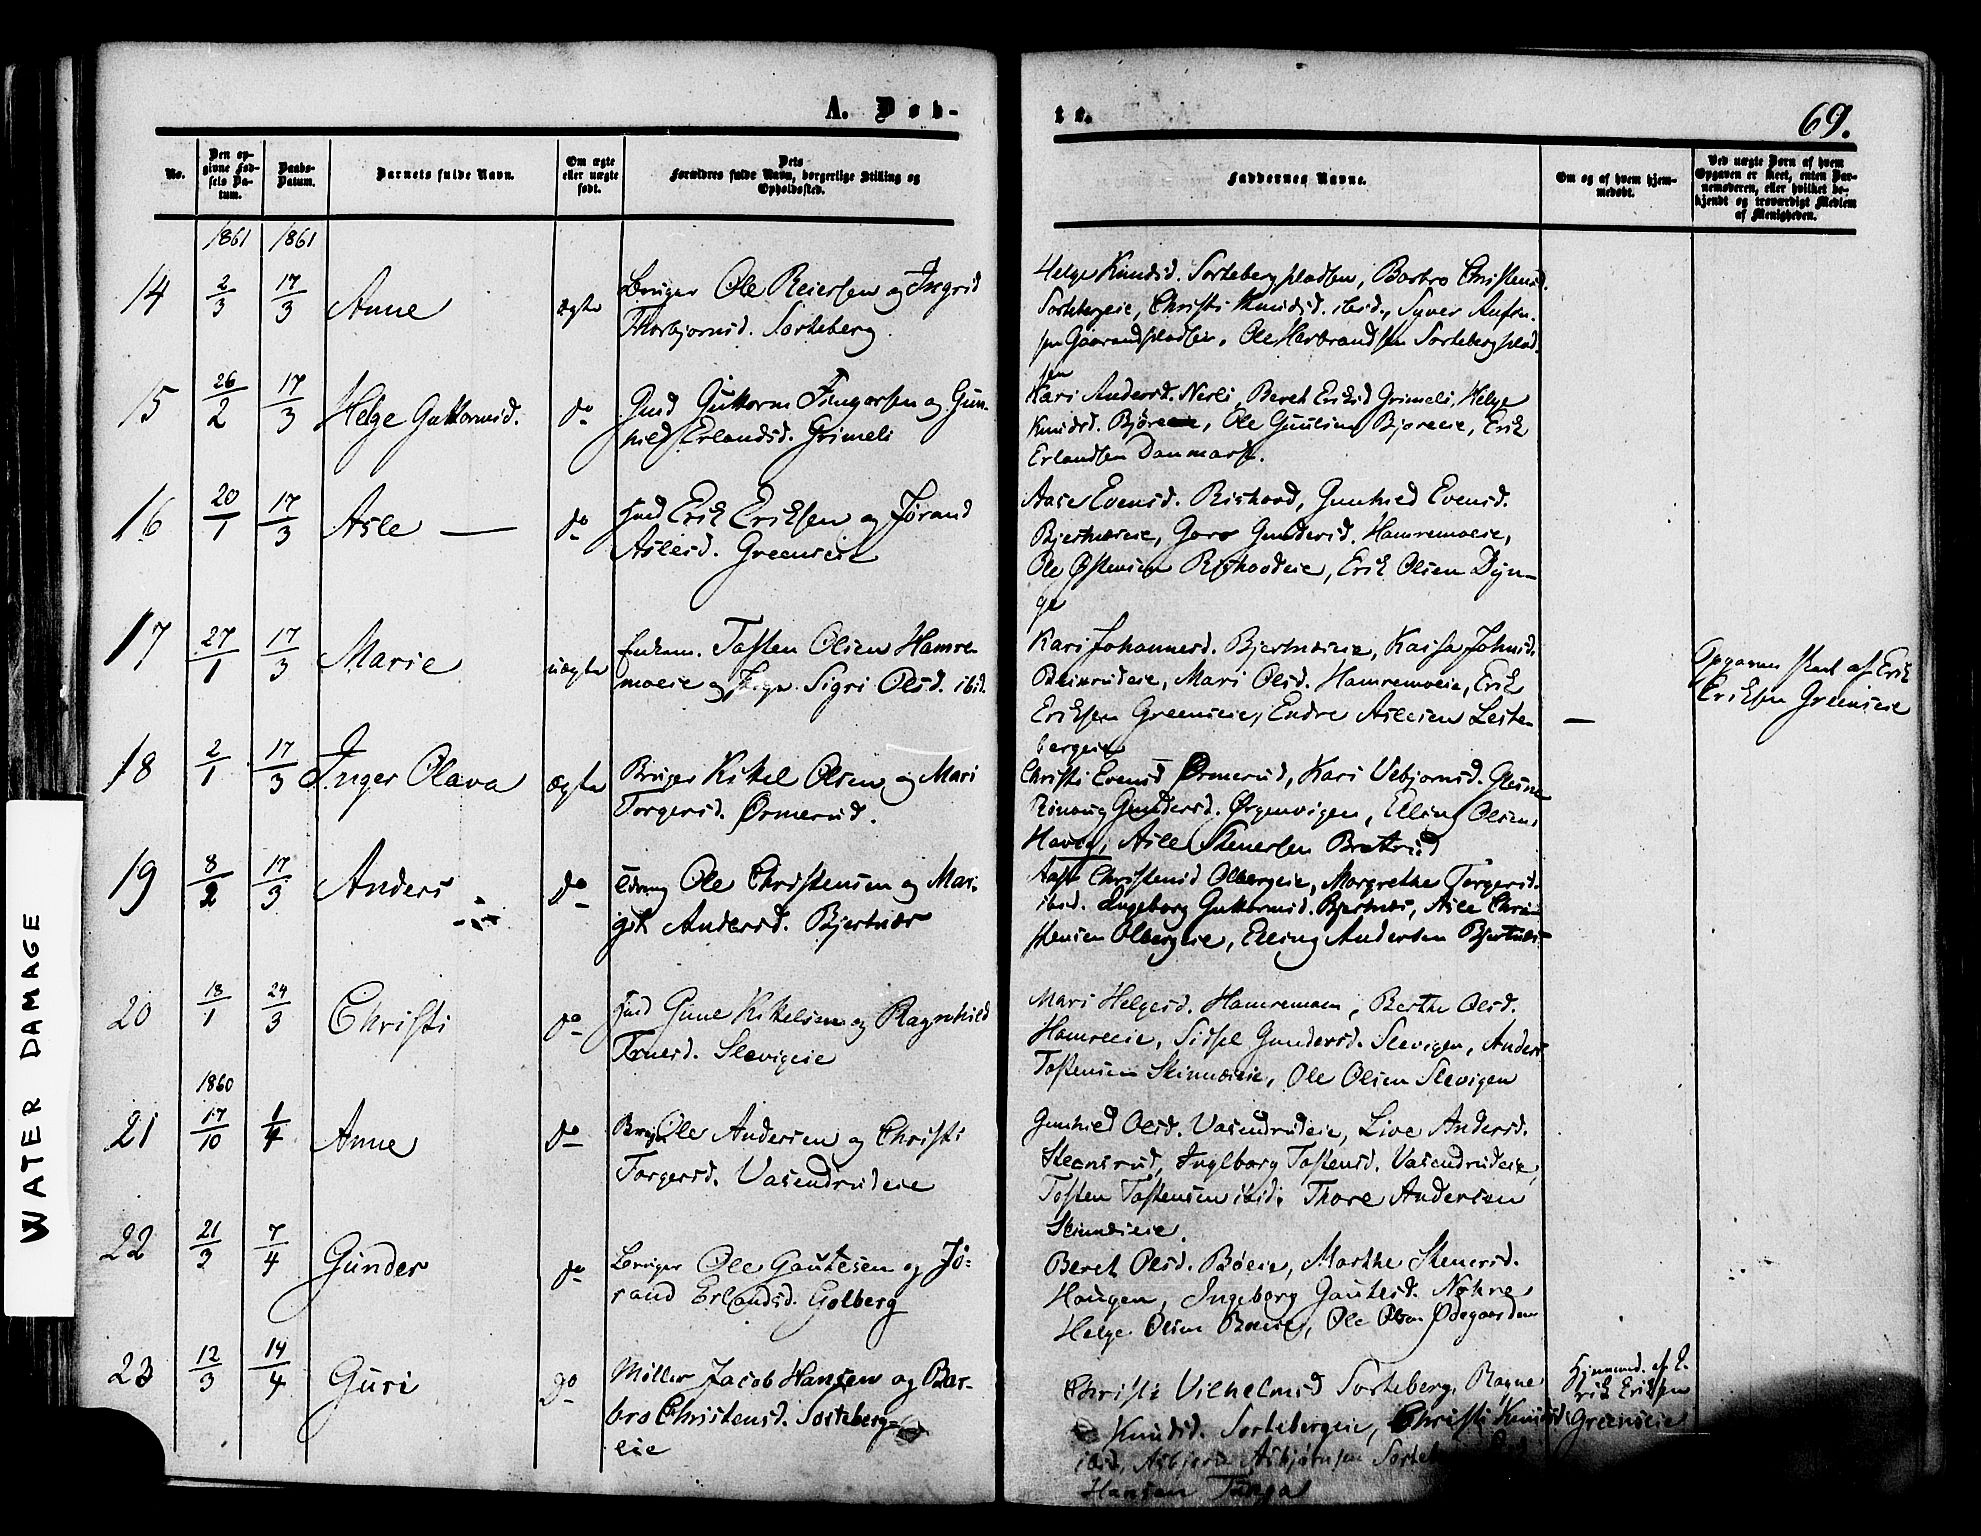 A. Døb-
te.
69.
No.
Den op-
givne Fød-
sels Da-
tum.
Daabs-
Datum.
Barnets fulde Navn.
Om ægte
eller uægte
født.
Dets
Forældres fulde Navn, borgerlige Stilling og
Opholdssted.
Faddernes Navne.
Om og af hvem hjem-
medøbt.
Ved uægte Børn af hvem
Opgaven er skeet, enten Bar-
nemoderen, eller hvilket be-
kjendt og troværdigt Medlem
af Menigheden.
1861 1861
14 2/3 17/3 Anne ægte Bruger Ole Reiersen og Ingrid
Thorbjørnsd. Sorteberg.
Helge Knudsd. Sortebergpladsen, Barbro Christensd.
Sortebergeie, Christi Knudsd. ibid., Syver
Gaarandpladsen, Ole Herbrandsen Sortebergplad-
sen
15 26/2 17/3 Helge Guttormsd. do Guttorm Fingarsen og Gun-
hild Erlandsd. Grimeli
Kari Andersd. Nerli, Beret Eriksd Grimeli, Helge
Knudsd. Bjøreeie, Ole Bjøreeie, Erik
Erlandsen Danmark.
16 20/1 17/3 Asle — do Erik Eriksen og Jørand
Aslesd. Greenseie
Aase Evensd. Rishood, Gunhild Evensd.
Bjertnæseie, Goro Gundersd. Hamremoeie,
Ole Østensen Rishoodeie, Erik Olsen Dyn-
ge
17 27/1 17/3 Marie uægte Enkem. Tosten Olsen Hamre-
moeie og Sigri Olsd. ibid.
Kari Johannesd. Bjertnæseie, Kaisa Johnsd.
Beinrudeie, Mari Olsd. Hamremoeie, Erik
Eriksen Greenseie, Endre Aslesen Leste-
bergeie
—
Opgaven skeet af Erik
Eriksen Greenseie
18 2/1 17/3 Inger Olava ægte Bruger Kittel Olsen og Mari
Torgersd. Ørmerud.
Christi Evensd Ørmerud, Kari Vebjørnsd. Glesne
Rønnoug Gundersd. Ørgenvigen, Elling Olsen
Asle Stenersen Bratrud
19 8/2 17/3 Anders do Ole Christensen og Mar-
git Andersd. Bjertnæs
Christensd Olbergeie, Margrethe Torgersd.
ibid. Ingeborg Guttormsd. Bjertnæs, Asle Chri-
stensen Olbergeie, Elling Andersen Bjertnæs
20 18/1 24/3 Christi do Gune Kittelsen og Ragnhild
Truesd. Slevigeie
Mari Helgesd. Hamremoen, Berthe Olsd.
Hamreeie, Sidsel Gundersd. Slevigen, Anders
Tostensen Skinneseie, Ole Olsen Slevigen
1860
21 17/10 1/4 Anne do Brug Ole Andersen og Christi
Torgersd. Vasendrudeie
Gunhild Olsd. Vasendrudeie, Live Andersd.
Steensrud, Ingeborg Tostensd. Vasendrudeie,
Tosten Tostensen ibid. Thore Andersen
Skinneseie.
22 21/3 7/4 Gunder do Bruger Ole Gautesen og Jø-
rand Erlandsd. Golberg
Beret Olsd. Bøeie, Marthe Stenersd.
Haugen, Ingeborg Gautesd. Nøhre
Helge Olsen Bøeie, Ole Olsen Ødegaarden
23 12/3 14/4 Guri do Møller Jacob Hansen og Bar-
bro Christensd. Sorteberg-
eie
Christi Vilhelmsd Sorteberg, Ragne
Knudsd. Sortebergeie, Christi Knudsd.
ibid, Asbjørn Asbjørnsen
Hansen
Hjemmed. af E-
rik Eriksen
Greenseie
WATER DAMAGE